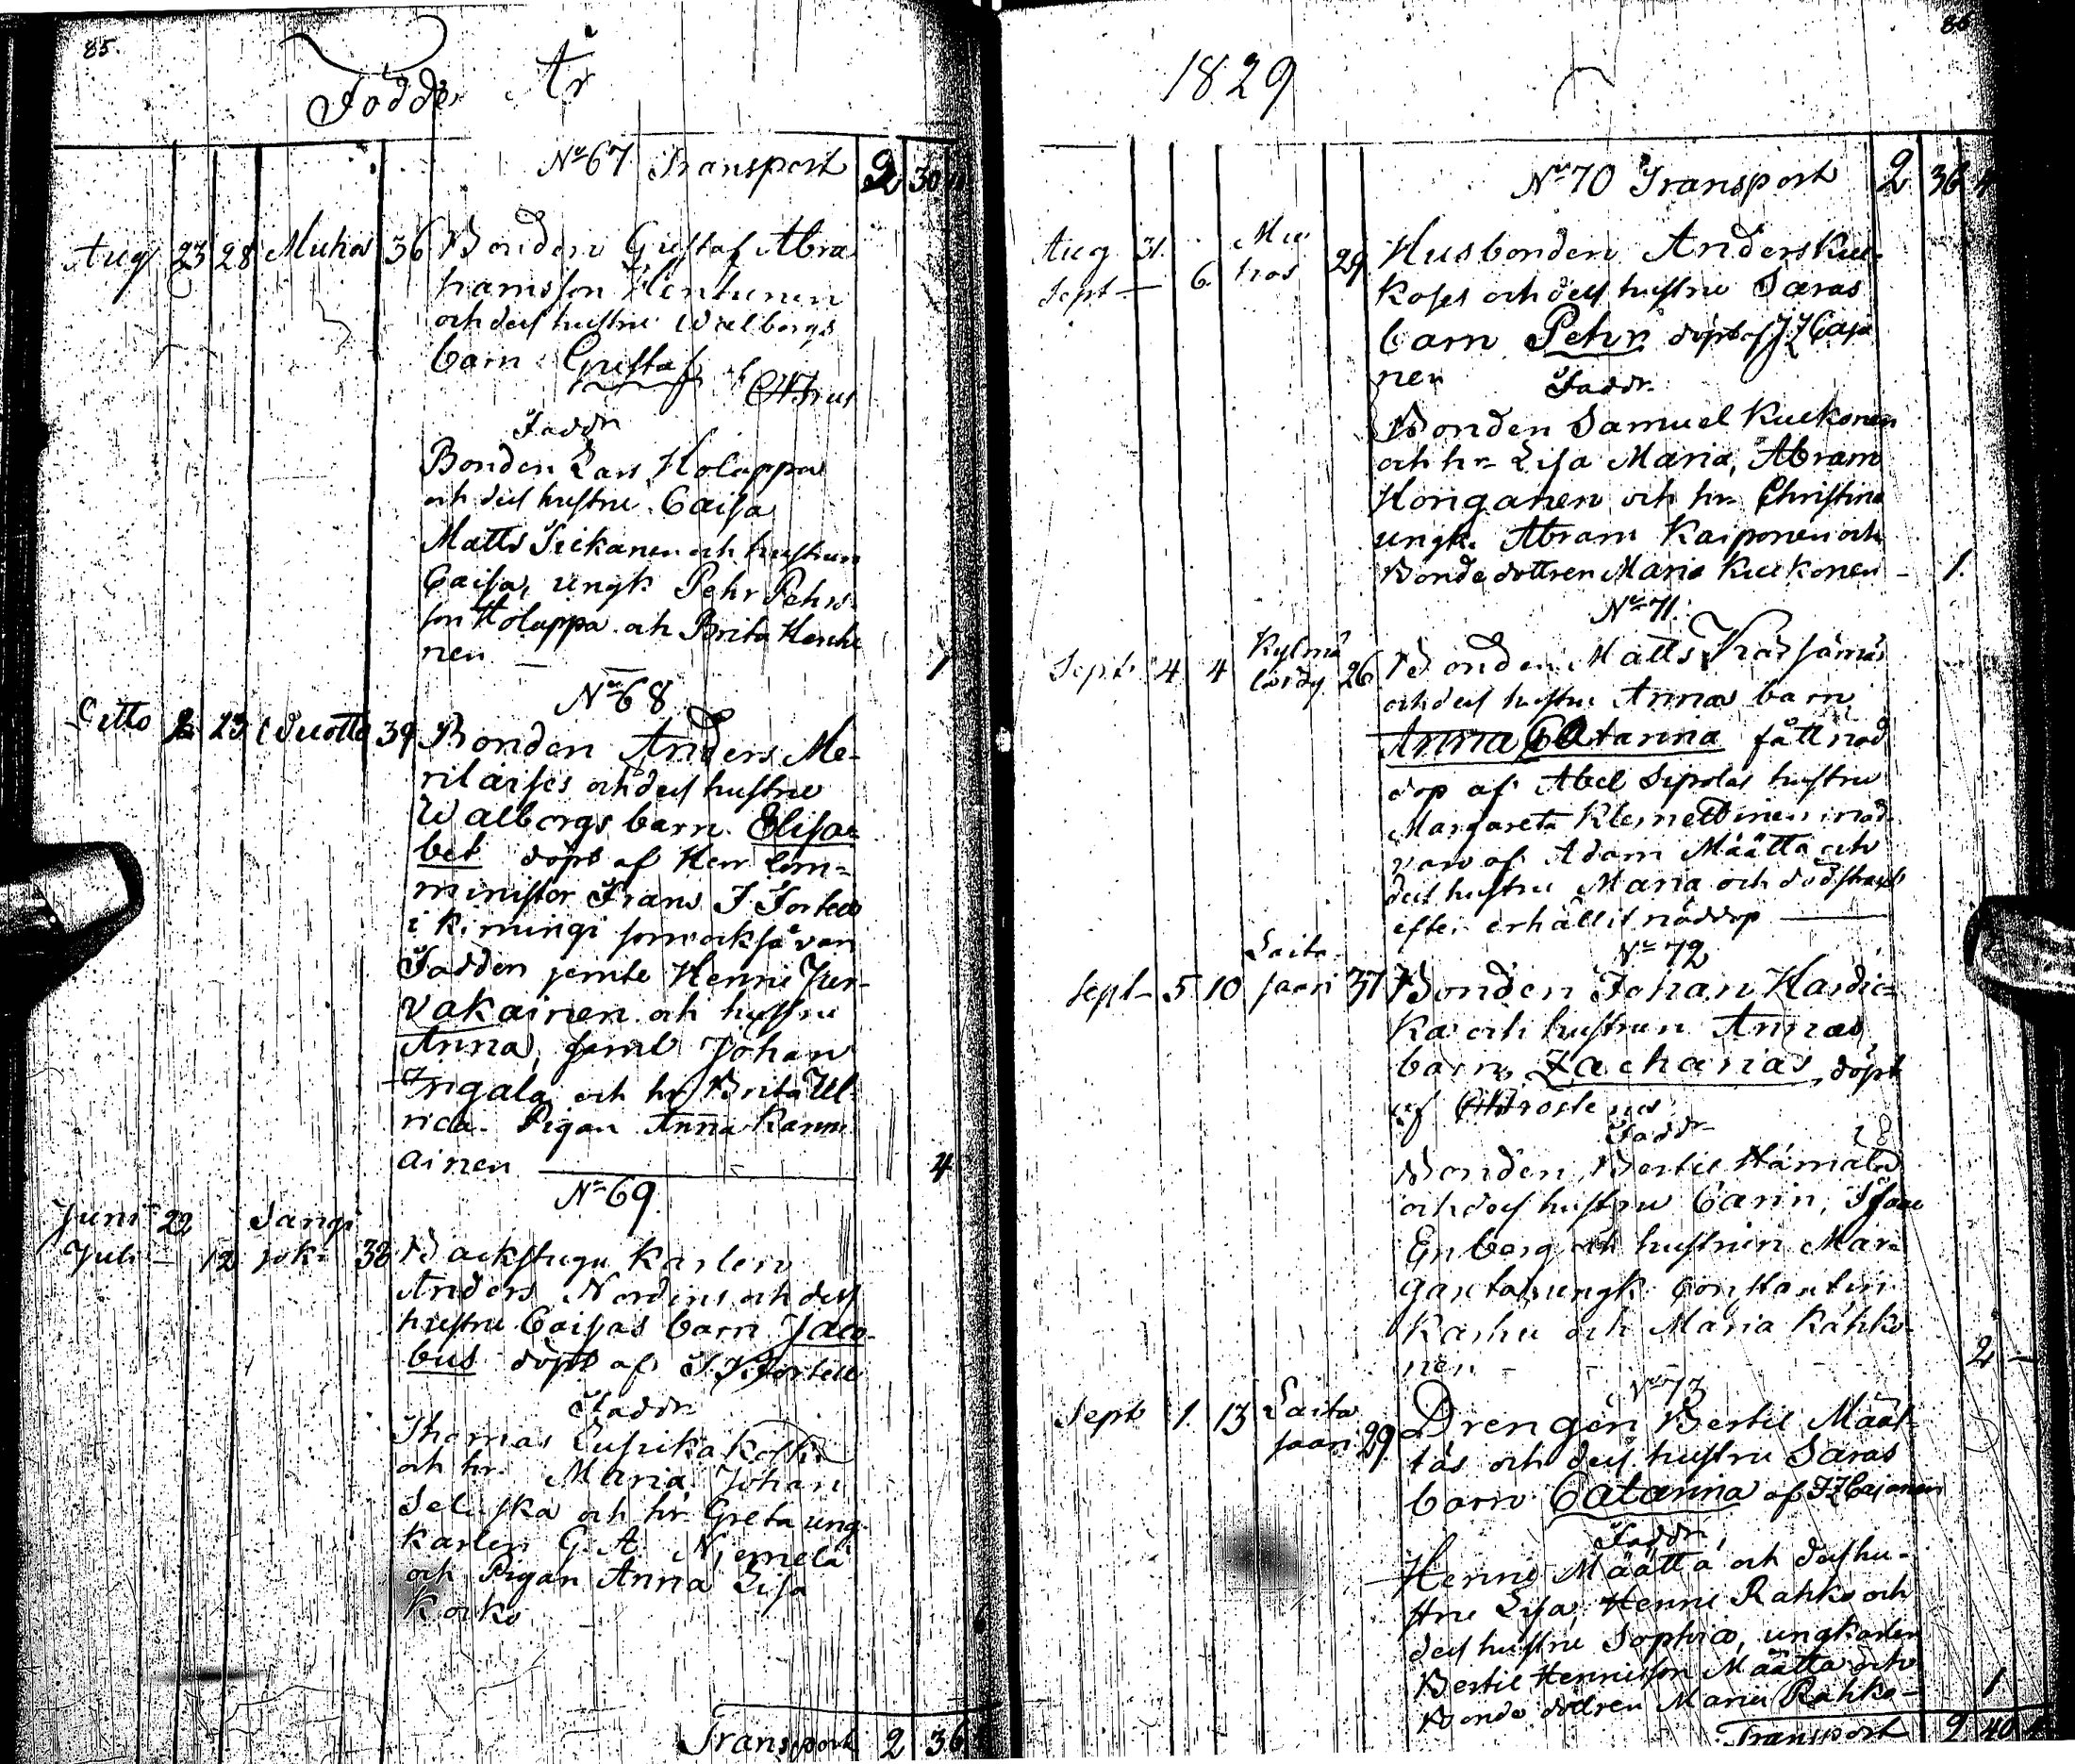 85.
Födde År
No 67 Transport 2 30
Aug 23 28 Muhos 36 Bonden Gustaf Abra
hamsson Henttunen
och dess hustru Walborgs
barn Gustaf af
Faddr
Bonden Lars Holappa
och dess hustru Caisa
Matts och hustrun
Caisa, ungk Pehr Pehrs-
son Holappa och Brita Hentu
nen — 1
No 68
Ditto 23 39 Bonden Anders Me-
riläises och dess hustru
Walborgs barn Elisa-
bet döpt af Herr Com-
minister Frans J Fortell
i Kimingi som också var
Fadder jemte Henric Kur-
vakainen och hustru
Anna, saml Johan
Ingala och hr Brita Ul-
rica. Pigan Anna
ainen — 4
No 69.
Juni 22 Sangi
Juli – 12 joki 38 Backstugu Karlen
Anders Nordins och dess
hustru Caisas barn Jaco-
bus döpt af Fortell
Faddr
Thomas
och hr Maria, Johan
och hr Greta ung
karlen G. A. Njemelä
och Pigan Anna Lisa
Korko
Transport 2 36
86
1829
No 70 Transport 2 36 4
Aug 31. Mu
Sept – 6. hos 29 Husbonden Anders Kuu-
koses och dess hustru Saras
barn Pehr döpt af J Z Caja
nen Faddr
Bonden Samuel Kuukonen
och hr Lisa Maria, Abram
Honganen och hr Christina
ungk. Abram Kaiponen och
Bonde dottren Maria Kuukonen – 1.
No 71.
Sept. 4 4 Kylmä
26 Bonden Matts
och dess hustru Anna barn
Anna Catarina fått nöd
dop af Abel Sipolas hustru
Margareta Klemettinen i när-
varo af Adam Määttä och
dess hustru Maria och dödt strax
efter erhållit nöddop —
No 72
Laita
Sept – 5 10 saari 37 Bonden Johan Kardic-
ka och hustrun Annas
barn Zacharias, döpt
af
Faddr
Bonden Bertil Hämälä
och dess hustru Carin, Isac
Enberg och hustrun Mar-
gareta, ungk. Constantin
Karhu och Maria Kähkö-
nen – – – – 2 –
No 73
Sept 1. 13 Laita
saari 29 Drengen Bertil Määt-
täs och dess hustru Saras
barn Catarina af J Z Cajanen
Faddr
Henric Määttä och dess hu-
stru Lisa, Henric Rahko och
dess hustru Sophia, ungkarlen
Bertil Hennisson Määttä och
Bonde dottren Maria Rahko – 1
Transport 2 40